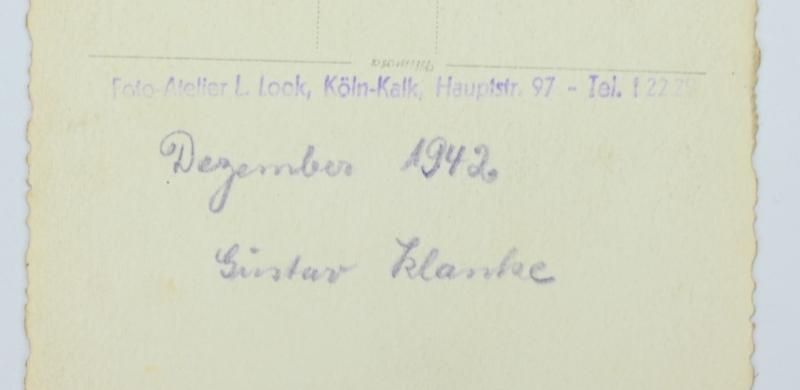 Foto-Atelier L. Look, Köln-Kalk, Hauptstr. 97 - Tel.
Dezember 1942
Gustav Klanke